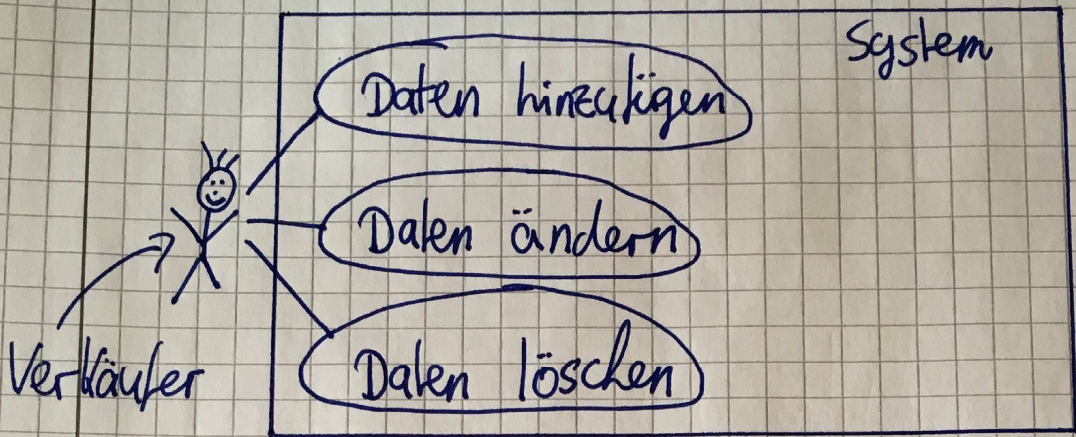 System
Daten hinzufügen
Daten ändern
Daten löschen
Verkäufer